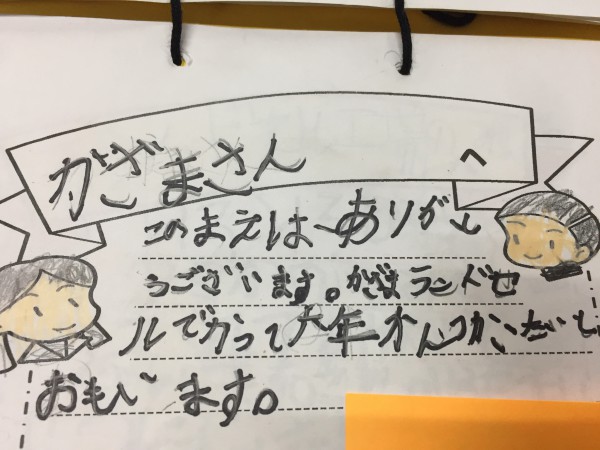 がざまさん へ
このまえは、ありがと
うございます。がざまランドセ
ルでかって六年かんつかいたいと
おもいます。